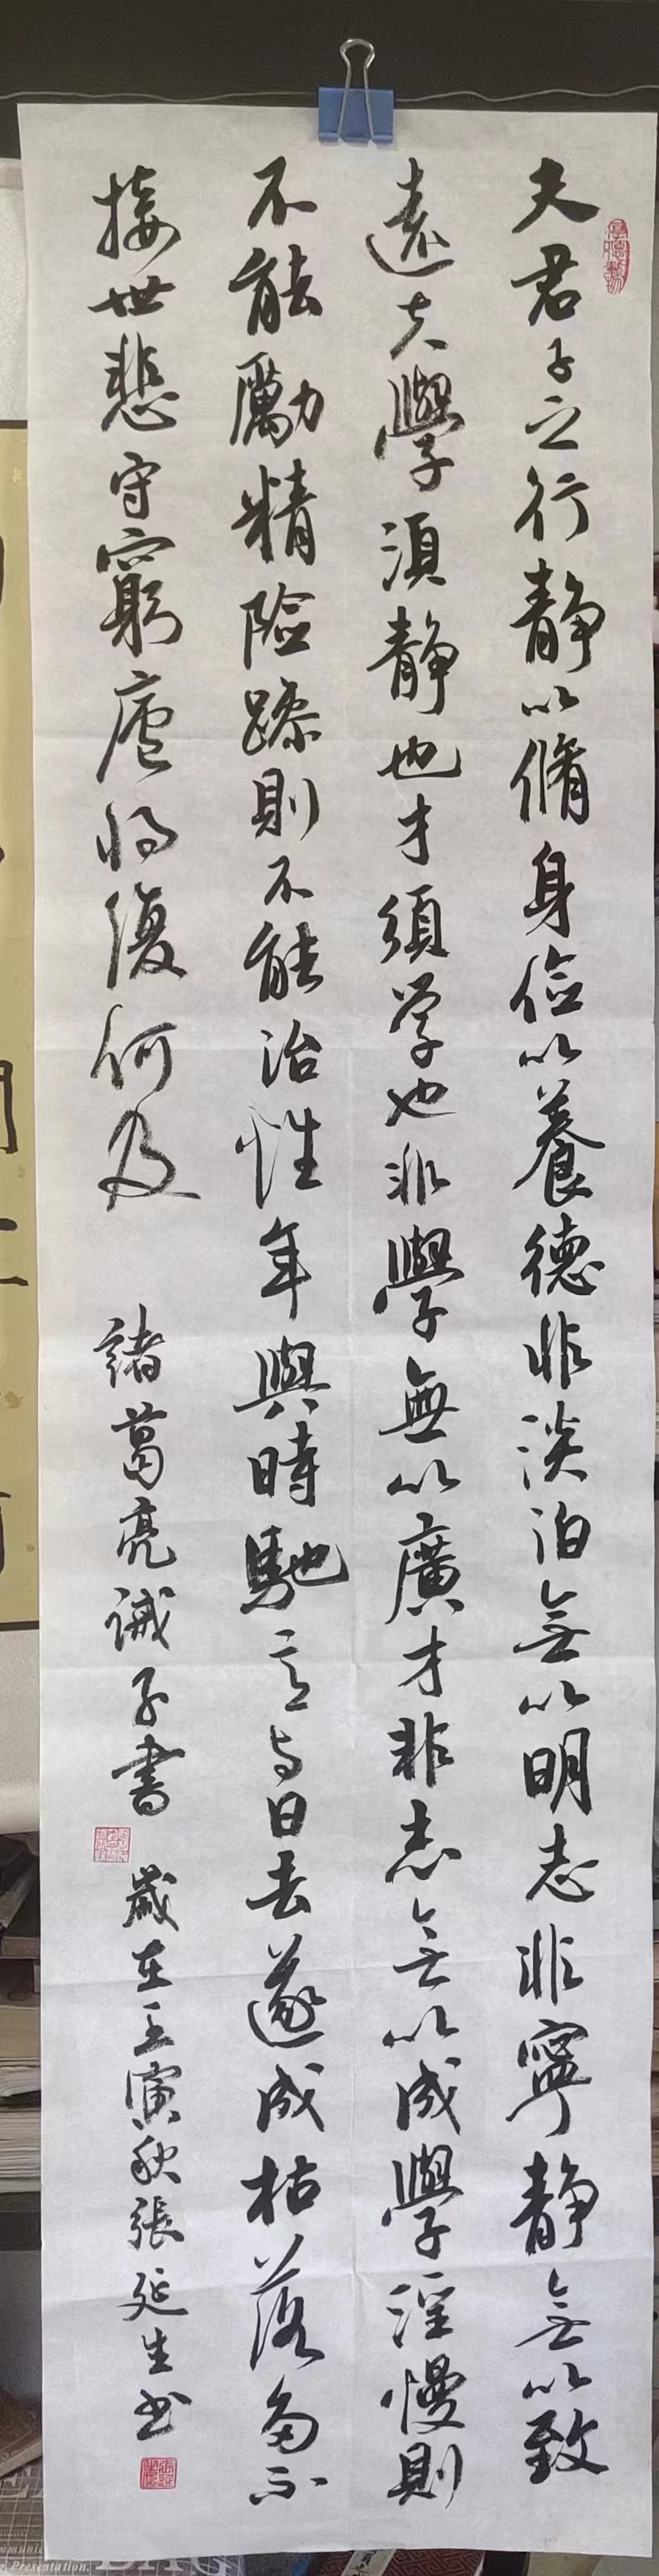 夫君子之行静以脩身儉以養德非淡泊無以明志非寧静無以致
遠夫學須静也才須学也非學無以廣才非志無以成學淫慢則
不能勵精險躁則不能治性年與時馳意与日去遂成枯落多不
接世悲守窮廬将復何及
諸葛亮誡子書
歲在壬寅秋張延生书
Presentation.